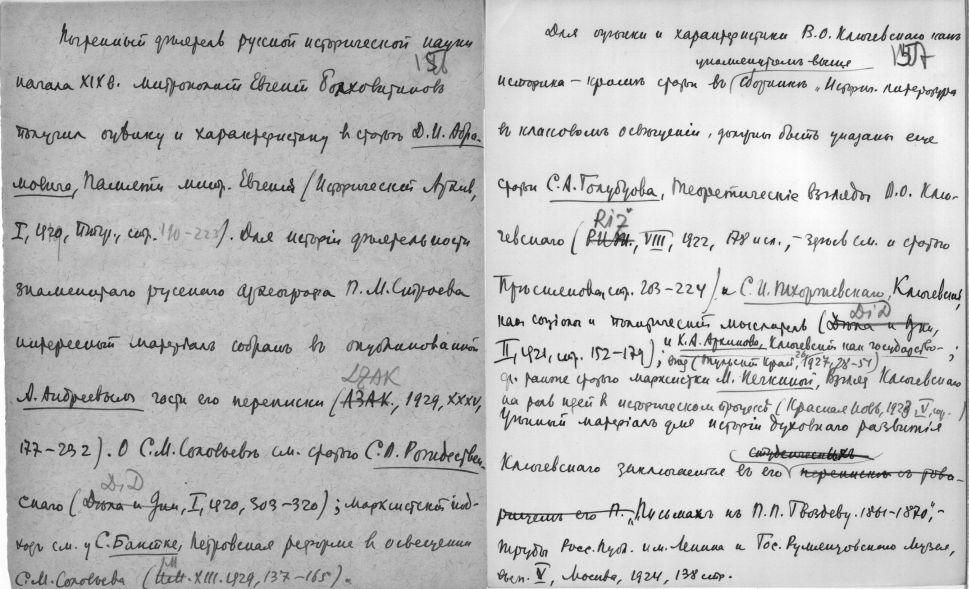 Почтенный деятель русской исторической науки
136
начала XIX в. митрополит Евгений Болховитинов
получил оценку и характеристику в статье Д.И. Абра-
мовича, Памяти митр. Евгения (Исторический Архив,
I, 1920, Птгр., стр. 190-223). Для истории деятельности
знаменитаго русскаго археографа П.М. Строева
интересный материал собран въ опубликованной
ЛЗАК
А. Андреевым части его переписки (АЗАК., 1929, XXXV,
177-232). О С.М. Соловьеве см. статью С.В. Рождествен-
DiD
скаго (Дела и Дни, I, 1920, 303-320); марксистский под-
ход см. у С. Бантке, Петровская реформа в освещении
С.М. Соловьева (И.М. XIII. 1929, 137-165).
Для оценки и характеристики В.О. Ключевского как
137
упомянутом выше
историка – кроме статьи въ Сборнике „Историч. литература
въ классовом освещении, должны быть указаны еще
статьи С.А. Голубцова, Теоретические взгляды В.О. Клю-
RiŽ
чевскаго (РИЖ, VIII, 1922, 178 и сл., – здесь см. и статью
Преснякова, стр. 203-224) и С.И. Тхоржевскаго, Ключевский,
DiD
как социолог и политический мыслитель (Дела и Дни,
II, 1921, стр. 152-179); и К.А. Аркинова, Ключевский как государство-
вед (Тульский Край, 1927, 28-51)
ср. ранее статью марксистки М. Нечкиной, Взгляд Ключевскаго
на роль идей в историческом процессе (Красная Новь, 1923, V,
Ценный материал для истории духовнаго развития
студенческих
Ключевскаго заключается въ его переписке съ това-
рищем его П. „Письмах к П.П. Гвоздеву. 1861-1870",-
Труды Росс. Пуб. им. Ленина и Гос. Румянцовскаго Музея,
вып. V, Москва, 1924, 138 стр.